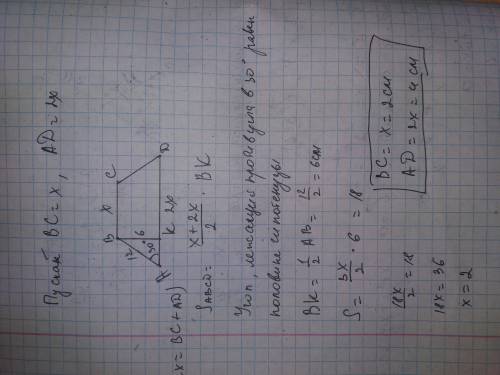 Пускай BC = x, AD = 2x
x = BC + AD)
B
x
C
12
6
30°
A
K
2x
D
S ABCD = x + 2x / 2 · BK
Угол, лежащий против угла в 30° равен
половине гипотенузы
BK = 1/2 AB = 12/2 = 6 см
S = 3x/2 · 6 = 18
18x/2 = 18
18x = 36
x = 2
BC = x = 2 см
AD = 2x = 4 см